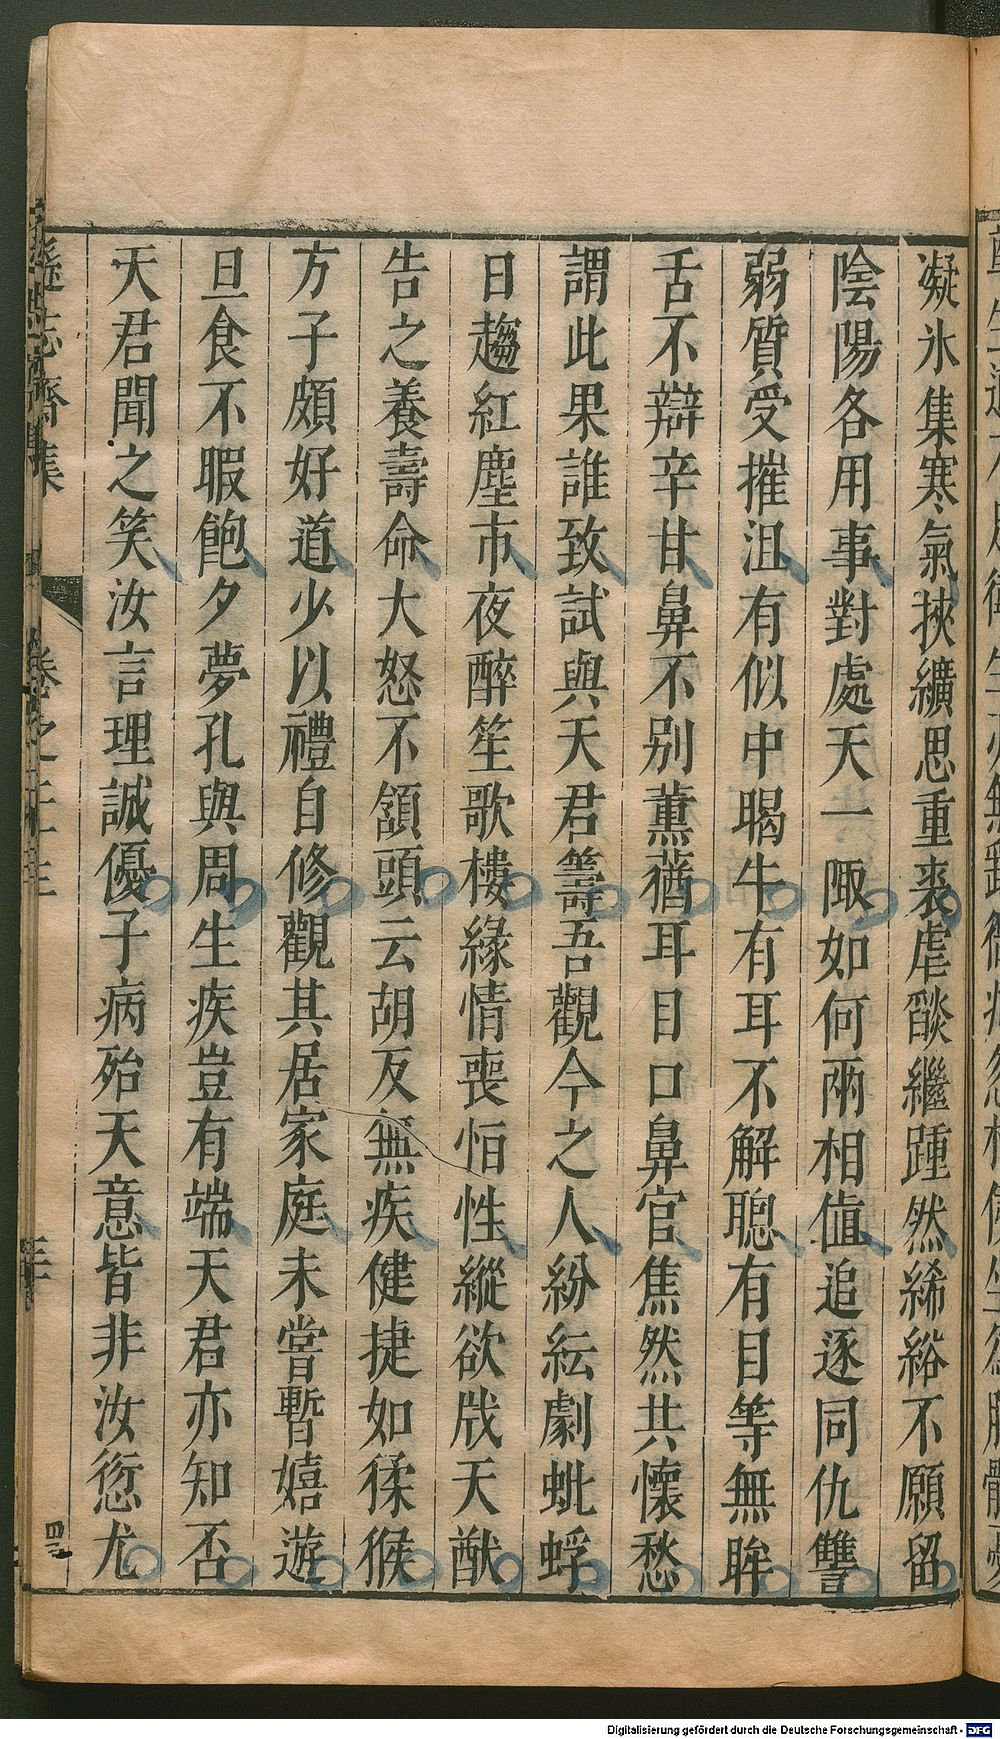 凝氷集寒氣挾纊思重裘虐燄繼踵然絺綌不願留
陰陽各用事對處天一陬如何兩相值追逐同仇讐
弱質受摧沮有似中暍牛有耳不解聰有目等無眸
舌不辯辛甘鼻不別薰蕕耳目口鼻官焦然共懷愁
謂此果誰致試與天君籌吾觀今之人紛紜劇蚍蜉
日趨紅塵市夜醉笙歌樓緣情喪恒性縱欲戕天猷
告之養壽命大怒不頷頭云胡反無疾健捷如猱猴
方子頗好道少以禮自修觀其居家庭未嘗暫嬉遊
旦食不暇飽夕夢孔與周生疾豈有端天君亦知否
天君聞之笑汝言理誠優子病殆天意皆非汝愆尤
遜志齋集
卷之二十三
四
Digitalisierung gefördert durch die Deutsche Forschungsgemeinschaft - DFG